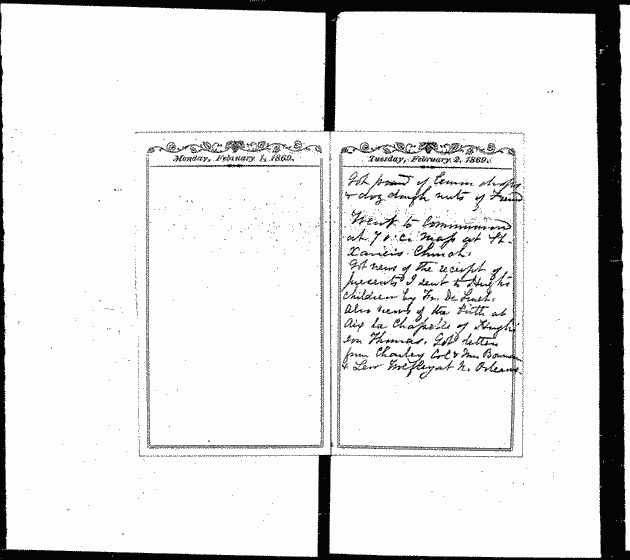 Monday, February 1, 1869.
Tuesday, February 2, 1869.
Got pound of lemon drops
& doz dough nuts of
Went to Communion
at 7 o.c. Mass at St.
Xavier's Church.
Got news of the receipt of
presents I sent to Hugh's
children by Fr. De Smet.
Also news of the birth at
Aix la Chapelle of Hugh's
son Thomas. Got letters
from Charley Col & Mrs Bowman
& Lew at N. Orleans.